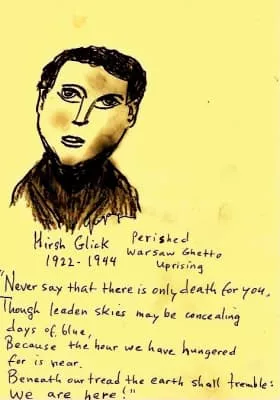 Hirsh Glick
1922-1944
Perished
Warsaw Ghetto
Uprising
"Never say that there is only death for you,
Though leaden skies may be concealing
days of blue,
Because the hour we have hungered
for is near.
Beneath our tread the earth shall tremble:
We are here!"